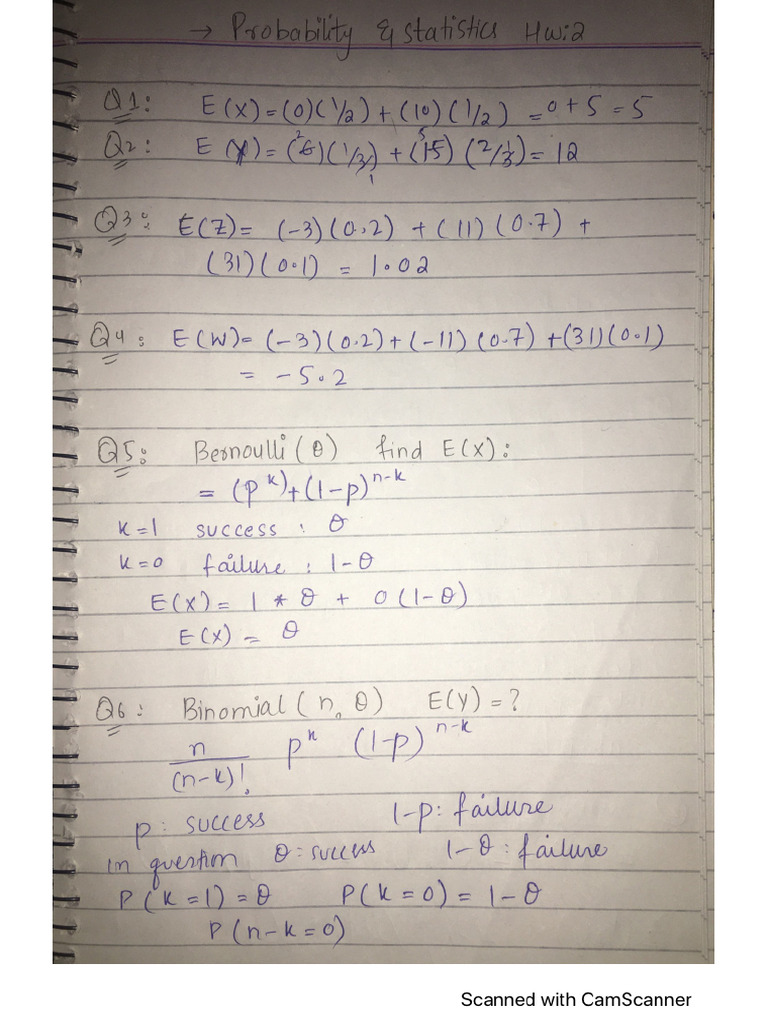 → Probability & statistics HW:2
Q1: E(X)=(0)(1/2)+(10)(1/2) =0+5=5
Q2: E(Y)=(6)(1/3)+(15)(2/3)=12
Q3: E(Z)= (-3)(0.2) + (11)(0.7) +
(31)(0.1) = 1.02
Q4: E(W)= (-3)(0.2)+(-11)(0.7) +(31)(0.1)
= -5.2
Q5: Bernoulli(θ) find E(X):
= (p^k)+(1-p)^n-k
k=1 success: θ
k=0 failure: 1-θ
E(X)= 1 * θ + 0(1-θ)
E(X) = θ
Q6: Binomial(n, θ) E(Y)=?
n
p^k (1-p)^n-k
(n-k)!
p: success 1-p: failure
in question θ: success 1-θ: failure
P(k=1)=θ P(k=0)=1-θ
P(n-k=0)
Scanned with CamScanner